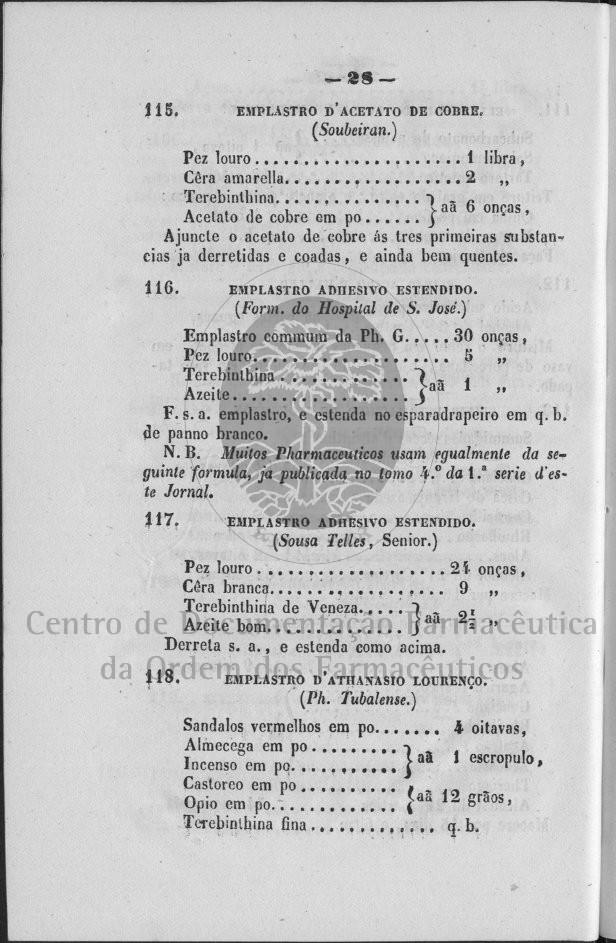 — 28 —
115. EMPLASTRO D'ACETATO DE COBRE.
(Soubeiran.)
Pez louro ...................... 1 libra,
Cêra amarella.................. 2 „
Terebinthina ................ } aã 6 onças,
Acetato de cobre em po ......
Ajuncte o acetato de cobre ás tres primeiras substan-
cias ja derretidas e coadas, e ainda bem quentes.
116. EMPLASTRO ADHESIVO ESTENDIDO.
(Form. do Hospital de S. José.)
Emplastro commum da Ph. G..... 30 onças,
Pez louro..................... 5 „
Terebinthina .............. } aã 1 „
Azeite....................
F. s. a. emplastro, e estenda no esparadrapeiro em q. b.
de panno branco.
N. B. Muitos Pharmaceuticos usam egualmente da se-
guinte formula, ja publicada no tomo 4.º da 1.ª serie d'es-
te Jornal.
117. EMPLASTRO ADHESIVO ESTENDIDO.
(Sousa Telles, Senior.)
Pez louro ................... 24 onças,
Cêra branca.................. 9 „
Terebinthina de Veneza..... } aã 2½ „
Azeite bom..............
Derreta s. a., e estenda como acima.
118. EMPLASTRO D'ATHANASIO LOURENÇO.
(Ph. Tubalense.)
Sandalos vermelhos em po....... 4 oitavas,
Almecega em po ......... } aã 1 escropulo,
Incenso em po...........
Castoreo em po .......... { aã 12 grãos,
Opio em po..............
Terebinthina fina ............. q. b.
Centro de Documentação Farmacêutica
da Ordem dos Farmacêuticos